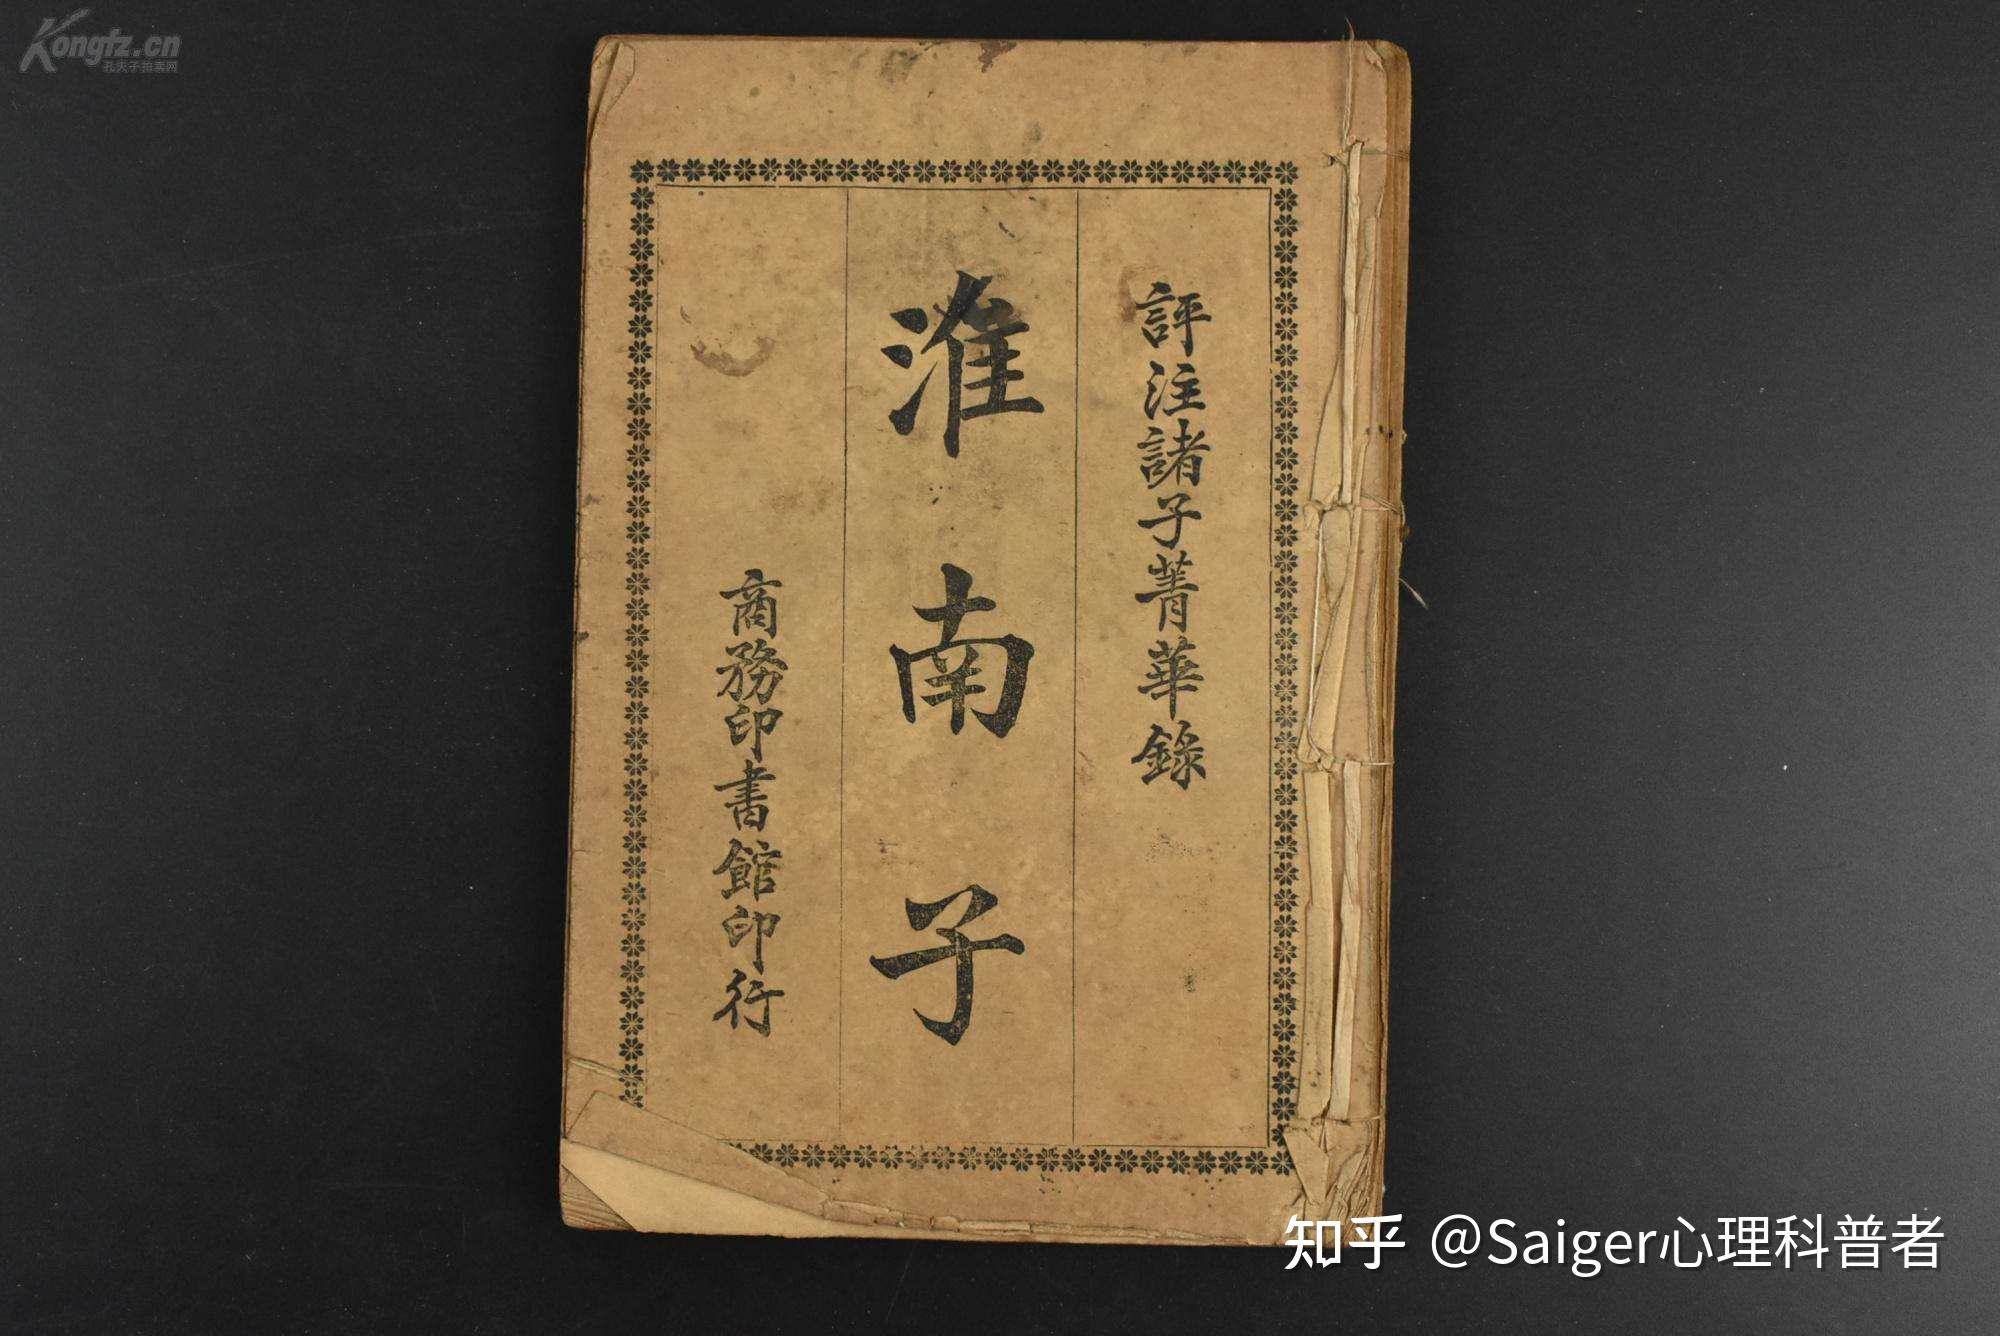 Kongfz.cn
孔夫子拍卖网
評注諸子菁華錄
淮南子
商務印書館印行
知乎 @Saiger心理科普者